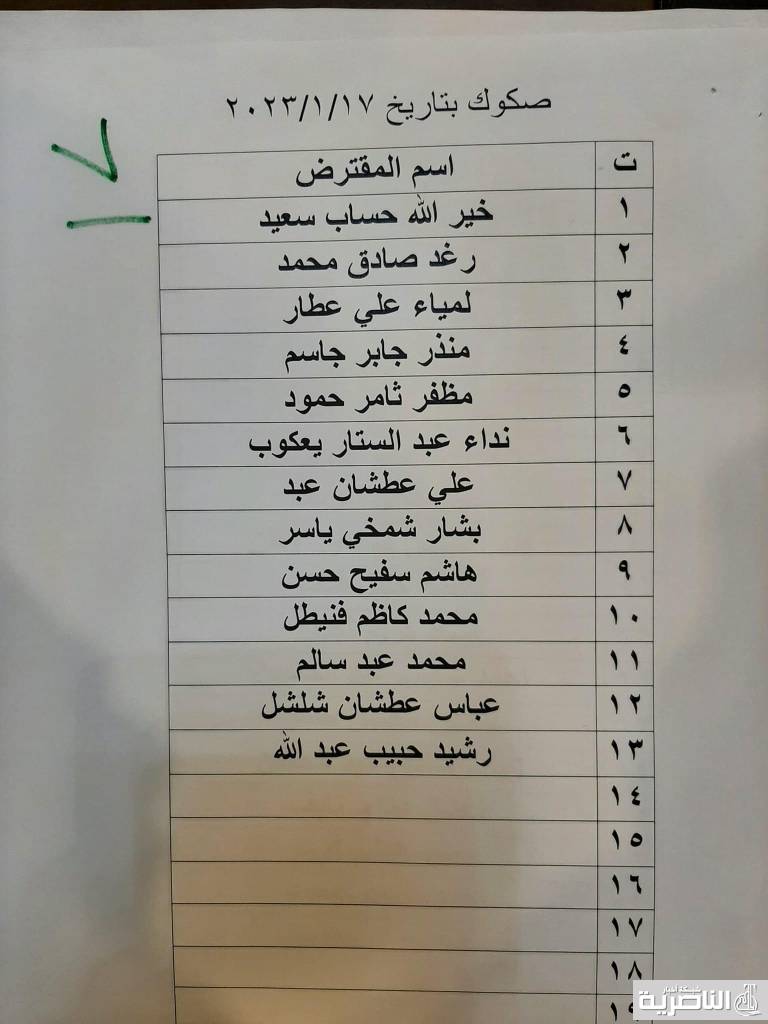 صكوك بتاريخ ٢٠٢٣/١/١٧
٧
ت اسم المقترض
١ خير الله حساب سعيد
٢ رغد صادق محمد
٣ لمياء علي عطار
٤ منذر جابر جاسم
٥ مظفر ثامر حمود
٦ نداء عبد الستار يعكوب
٧ علي عطشان عبد
٨ بشار شمخي ياسر
٩ هاشم سفيح حسن
١٠ محمد كاظم فنيطل
١١ محمد عبد سالم
١٢ عباس عطشان شلشل
١٣ رشيد حبيب عبد الله
١٤
١٥
١٦
١٧
١٨
١٩
شبكة أخبار
الناصرية